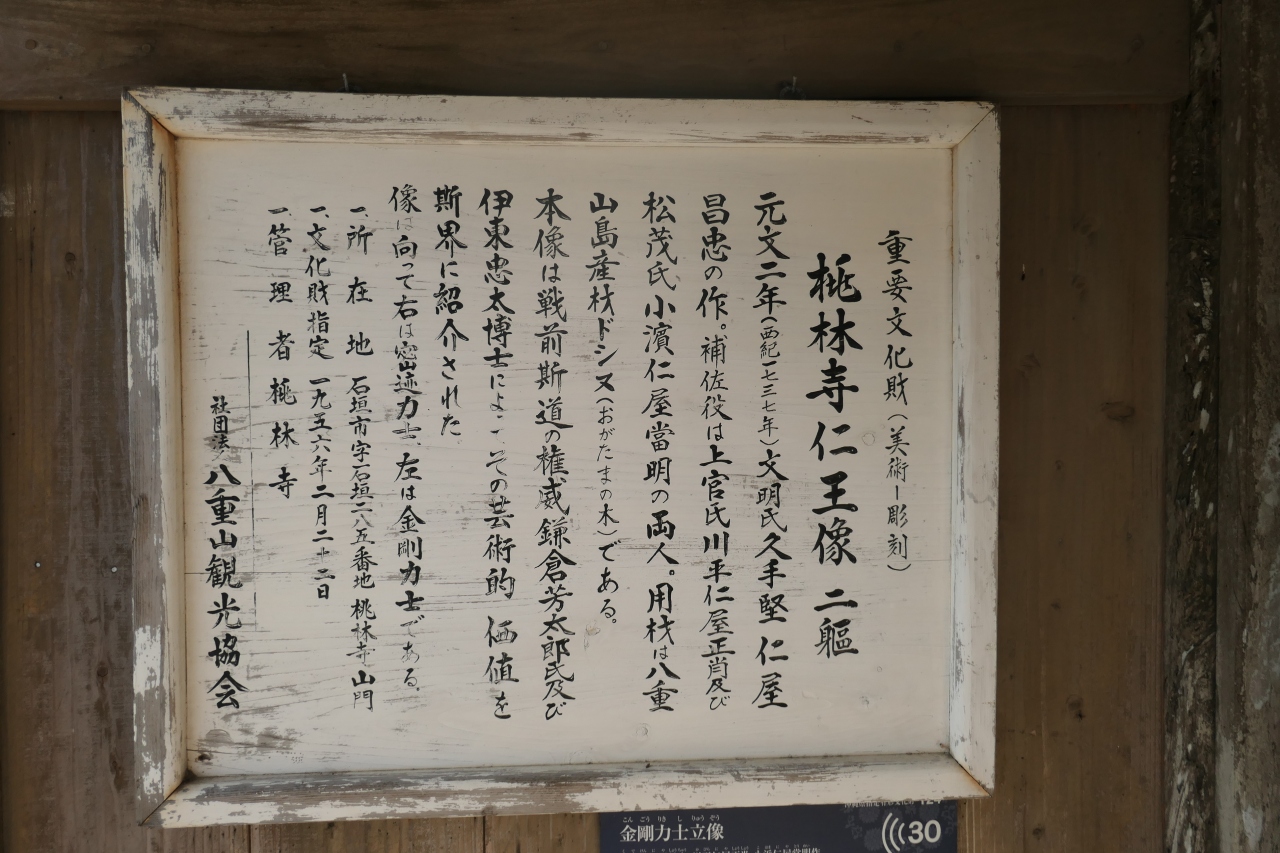 重要文化財(美術ー彫刻)
桃林寺仁王像 二軀
元文二年(西紀一七三七年)文明氏久手堅仁屋
昌忠の作。補佐役は上官氏川平仁屋正肖及び
松茂氏小濱仁屋當明の両人。用材は八重
山島産材ドシヌ(おがたまの木)である。
本像は戦前斯道の権威鎌倉芳太郎氏及び
伊東忠太博士によ その芸術的価値を
斯界に紹介された
像は向って右は密迹力士、左は金剛力士である。
一、所在地 石垣市字石垣二八五番地 桃林寺山門
一、文化財指定 一九五六年二月二十二日
一、管理者 桃林寺
社団法 八重山観光協会
こんごうりきしりゅうぞう
金剛力士立像
30